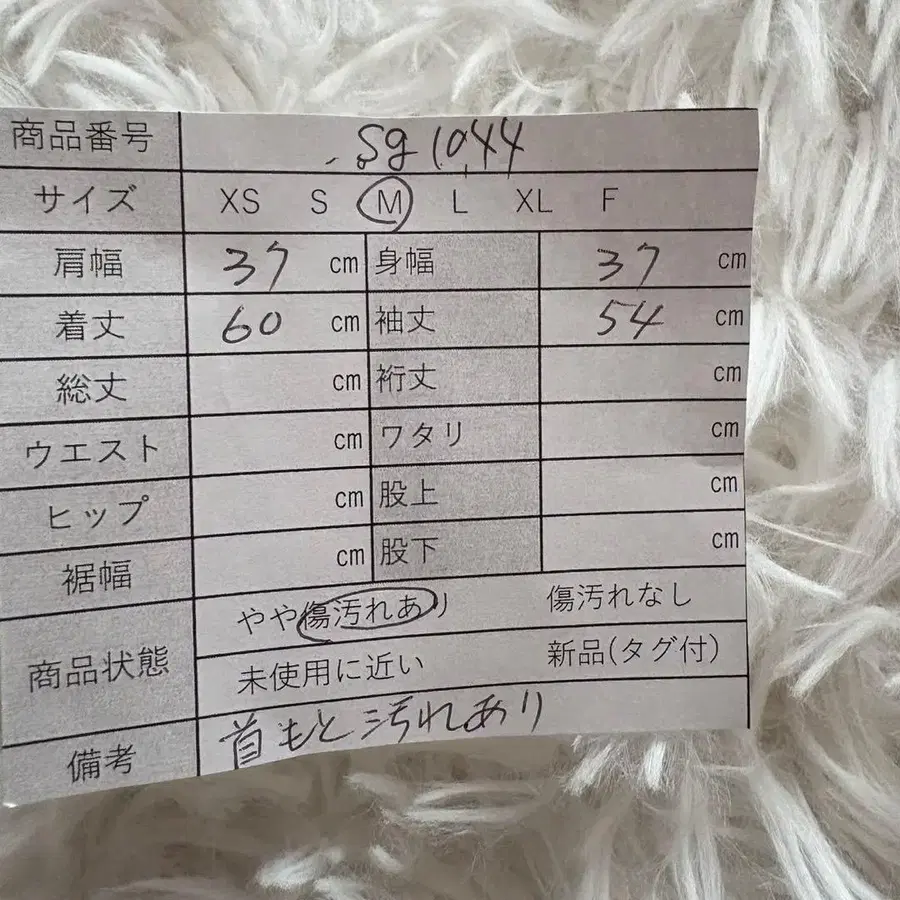 商品番号 sg1044
サイズ XS S M L XL F
肩幅 37 cm 身幅 37 cm
着丈 60 cm 袖丈 54 cm
総丈 cm 裄丈 cm
ウエスト cm ワタリ cm
ヒップ cm 股上 cm
裾幅 cm 股下 cm
商品状態 やや傷汚れあり 傷汚れなし
未使用に近い 新品(タグ付)
備考 首もと汚れあり